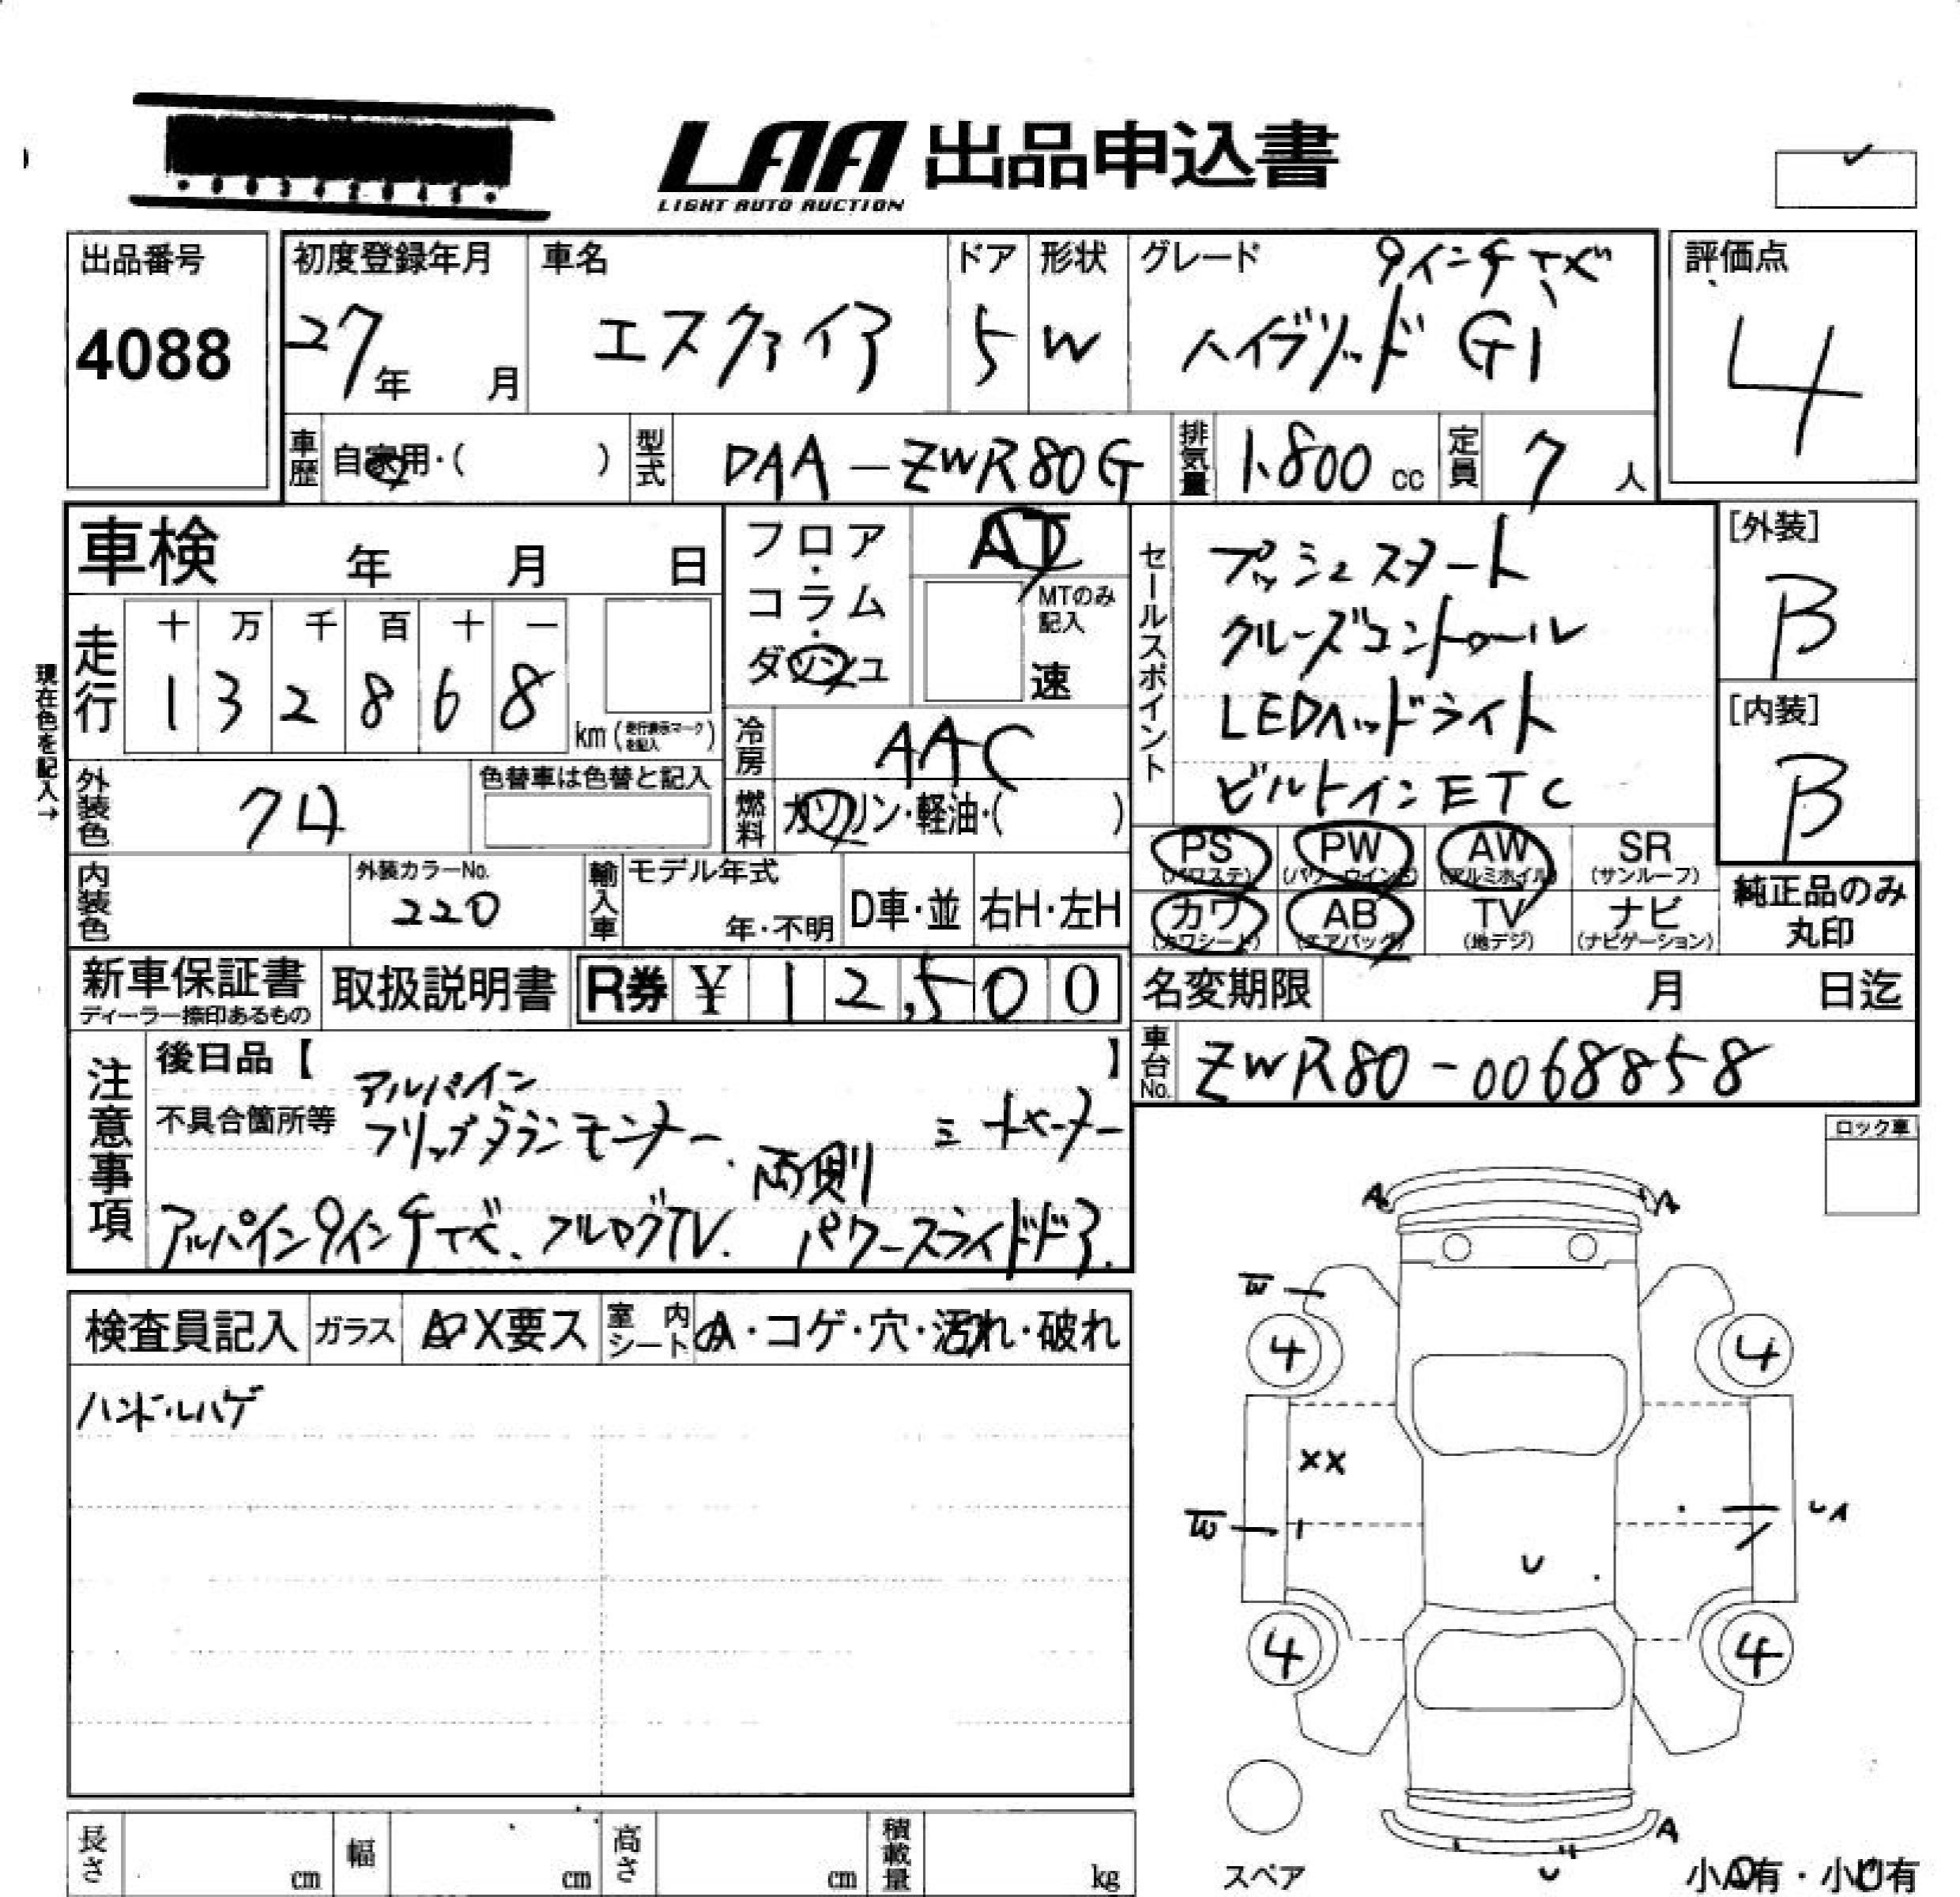 LAA 出品申込書
LIGHT AUTO AUCTION
出品番号
4088
初度登録年月
27年 月
車名
エスクァイア
ドア
5
形状
W
グレード
9インチナビ
ハイブリッド Gi
評価点
4
車歴 自家用・( )
型式 DAA-ZWR80G
排気量 1.800 cc
定員 7 人
車検 年 月 日
フロア・コラム・ダッシュ
AT
MTのみ記入
速
セールスポイント
プッシュスタート
クルーズコントロール
LEDヘッドライト
ビルトインETC
[外装]
B
[内装]
B
現在色を記入→
走行
十 万 千 百 十 一
1 3 2 8 6 8
km(走行表示マークを記入)
冷房 AAC
外装色 クロ
色替車は色替と記入
燃料 ガソリン・軽油・( )
内装色
外装カラーNo.
220
輸入車
モデル年式
年・不明
D車・並
右H・左H
PS (パワステ)
PW (パワーウインド)
AW (アルミホイル)
SR (サンルーフ)
カワ (カワシート)
AB (エアバッグ)
TV (地デジ)
ナビ (ナビゲーション)
純正品のみ
丸印
新車保証書
ディーラー捺印あるもの
取扱説明書
R券 ¥ 12,500
名変期限 月 日迄
車台No. ZWR80-0068858
注意事項
後日品【 】
不具合箇所等
アルパイン
フリップダウンモニター、
両側
アルパイン9インチナビ、フルセグTV、パワースライドドア、
ロック車
検査員記入
ガラス
A・X要ス
室内シート
A・コゲ・穴・汚れ・破れ
ハンドルハゲ
A A
W
4 4
XX
W
U A
U
4 4
A
U
スペア
小A有・小U有
長さ cm
幅 cm
高さ cm
積載量 kg